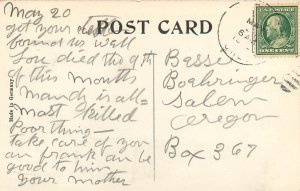 May 20
got your card
found us well
Lou died the 9th
of this month
manch is all-
most killed
Poor thing —
take care of you
an frank an be
good to him
your mother
Made in Germany
POST CARD
Besse
Boehringer
Salem
Oregon
Box 367
ONE CENT